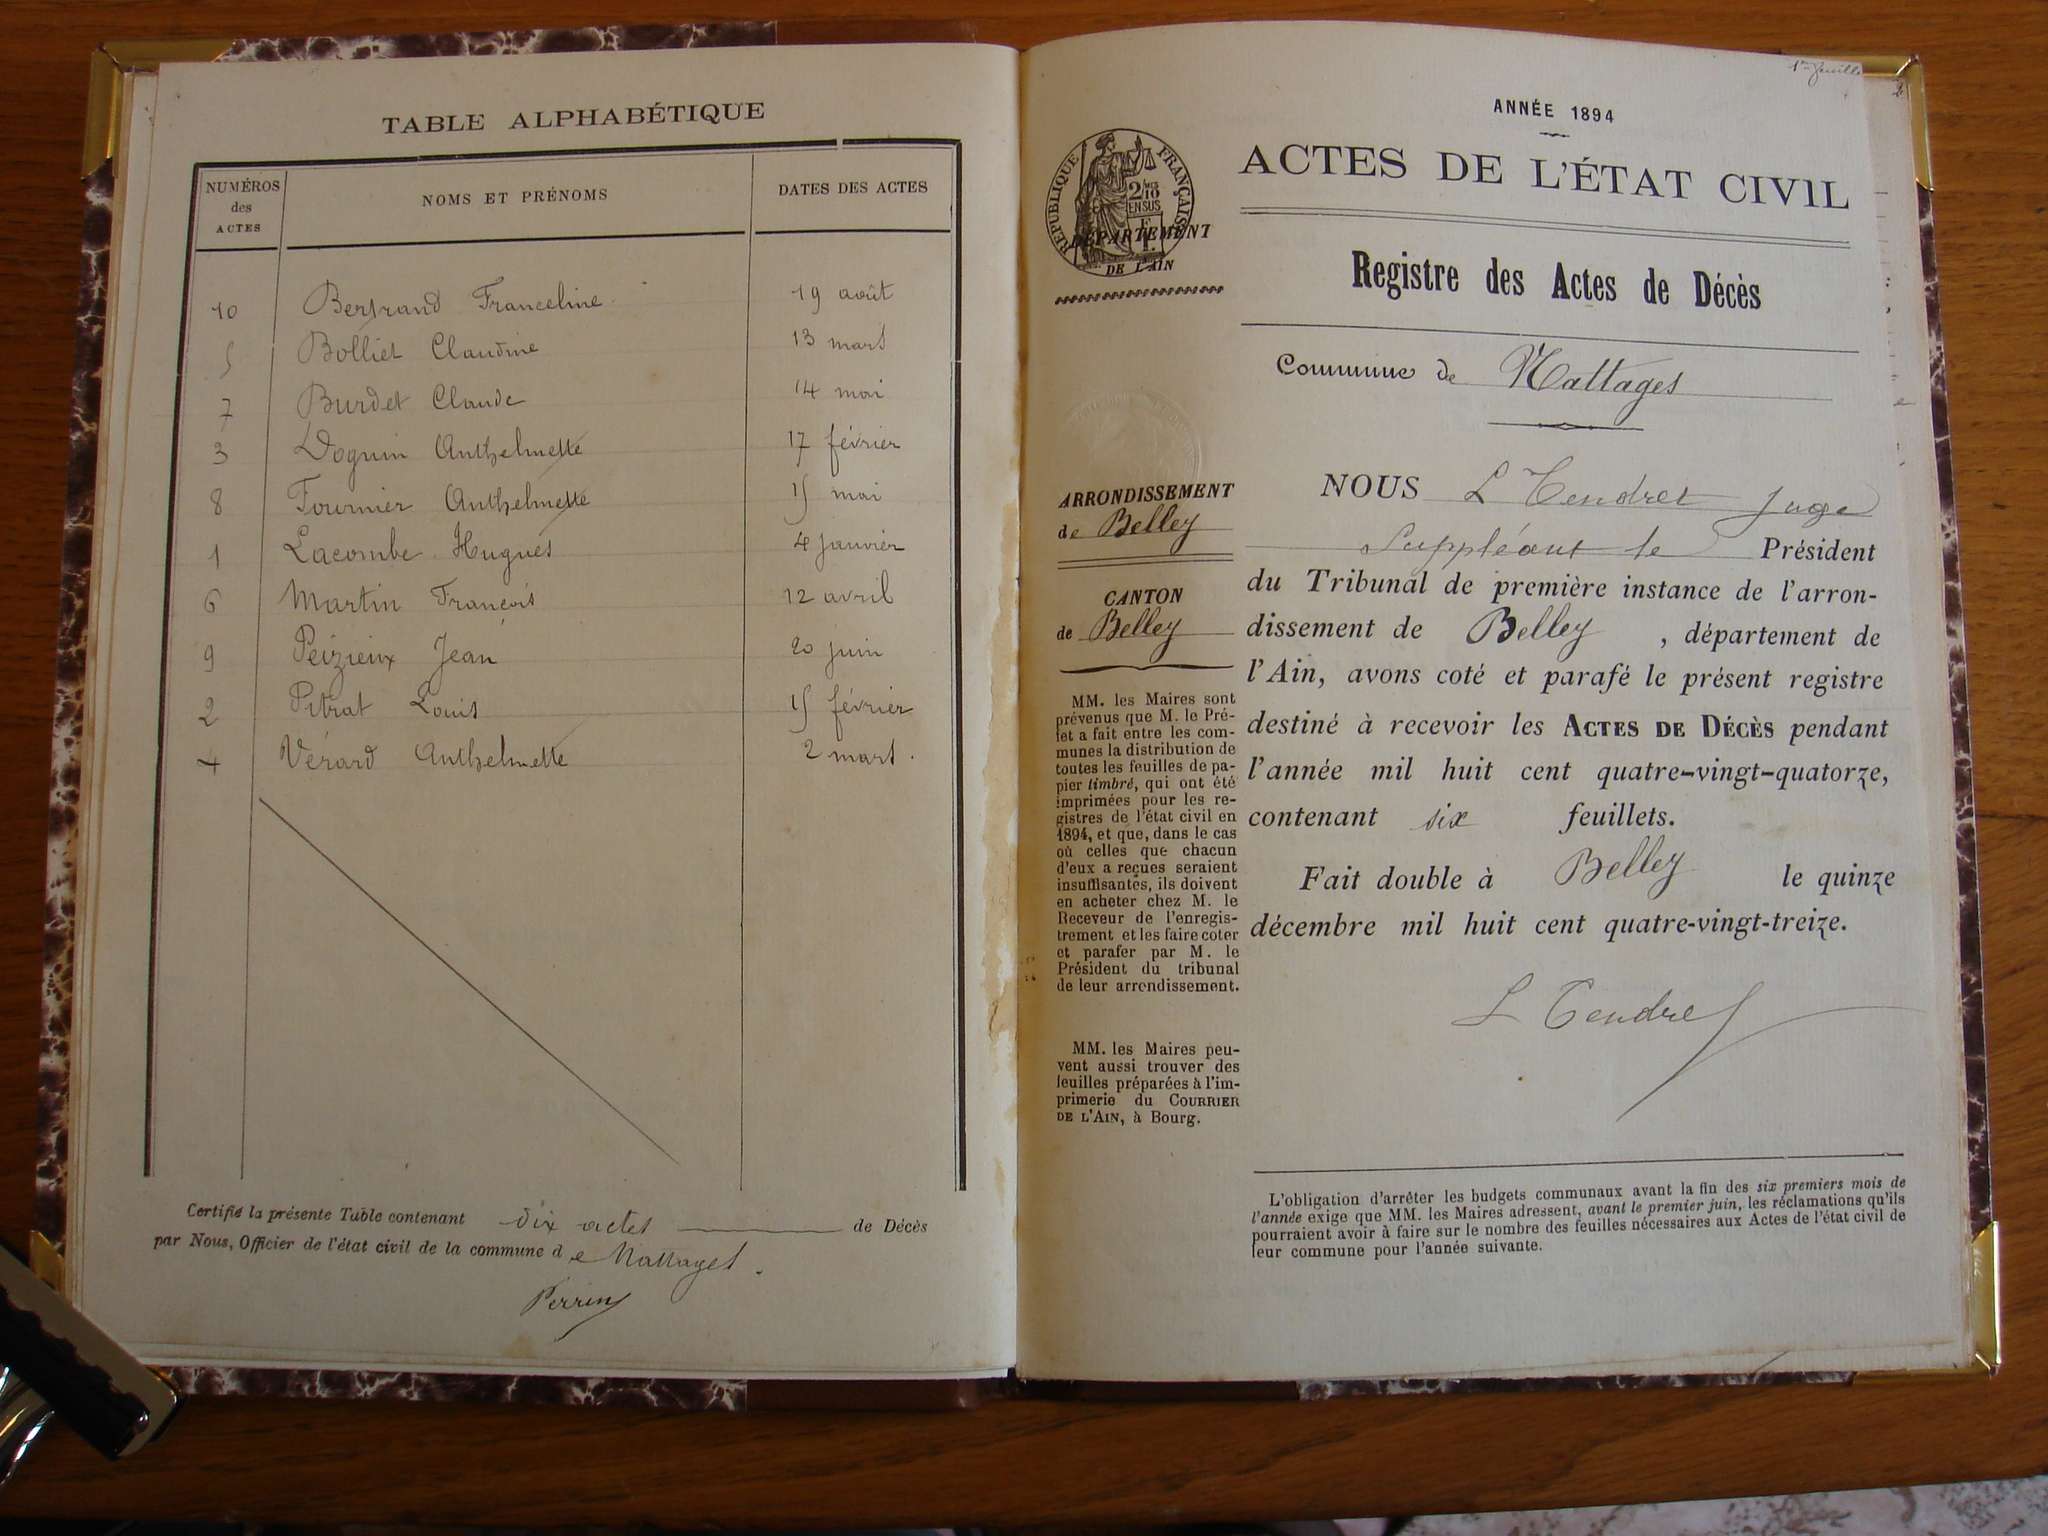 TABLE ALPHABÉTIQUE
NUMÉROS des ACTES NOMS ET PRÉNOMS DATES DES ACTES
10 Bertrand Franceline 19 août
5 Bolliet Claudine 13 mars
7 Burdet Claude 14 mai
3 Doguin Anthelmette 17 février
8 Fournier Anthelmette 15 mai
1 Lacombe Hugues 4 janvier
6 Martin François 12 avril
9 Peizieux Jean 20 juin
2 Pitrat Louis 15 février
4 Vérard Anthelmette 2 mars.
Certifié la présente Table contenant dix actes de Décès
par Nous, Officier de l'état civil de la commune de Nattages.
Perrin
1er feuille
ANNÉE 1894
ACTES DE L'ÉTAT CIVIL
RÉPUBLIQUE FRANÇAISE
2/10 EN SUS
DÉPARTEMENT
DE L'AIN
Registre des Actes de Décès
Commune de Nattages
ARRONDISSEMENT
de Belley
CANTON
de Belley
MM. les Maires sont
prévenus que M. le Pré-
fet a fait entre les com-
munes la distribution de
toutes les feuilles de pa-
pier timbré, qui ont été
imprimées pour les re-
gistres de l'état civil en
1894, et que, dans le cas
où celles que chacun
d'eux a reçues seraient
insuffisantes, ils doivent
en acheter chez M. le
Receveur de l'enregis-
trement et les faire coter
et parafer par M. le
Président du tribunal
de leur arrondissement.
MM. les Maires peu-
vent aussi trouver des
feuilles préparées à l'im-
primerie du COURRIER
DE L'AIN, à Bourg.
NOUS L Tendret Juge
Suppléant le Président
du Tribunal de première instance de l'arron-
dissement de Belley, département de
l'Ain, avons coté et parafé le présent registre
destiné à recevoir les ACTES DE DÉCÈS pendant
l'année mil huit cent quatre-vingt-quatorze,
contenant six feuillets.
Fait double à Belley le quinze
décembre mil huit cent quatre-vingt-treize.
L Tendret
L'obligation d'arrêter les budgets communaux avant la fin des six premiers mois de
l'année exige que MM. les Maires adressent, avant le premier juin, les réclamations qu'ils
pourraient avoir à faire sur le nombre des feuilles nécessaires aux Actes de l'état civil de
leur commune pour l'année suivante.